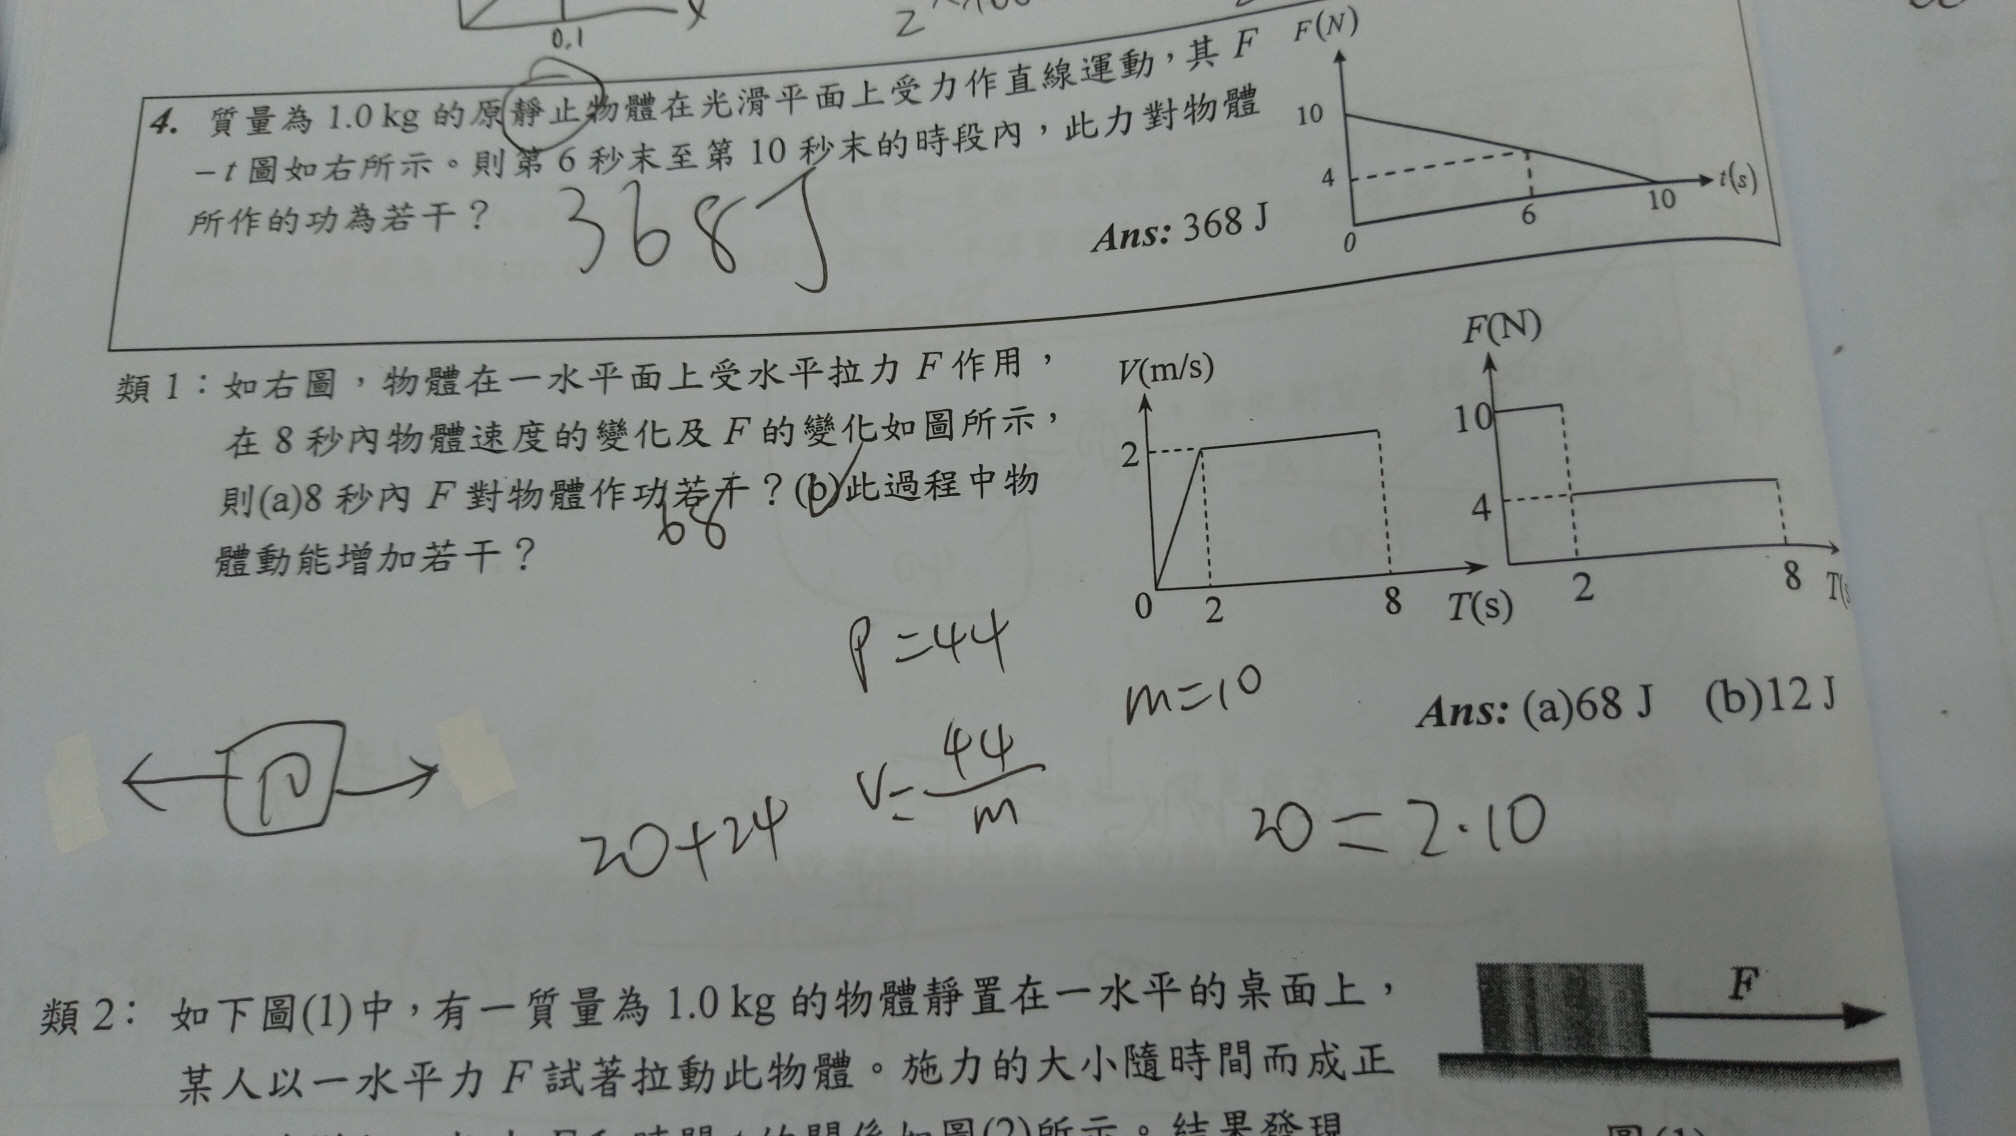 0.1
x
4. 質量為 1.0 kg 的原靜止物體在光滑平面上受力作直線運動，其 F
－t 圖如右所示。則第 6 秒末至第 10 秒末的時段內，此力對物體
所作的功為若干？
368J
Ans: 368 J
F(N)
10
4
0
6
10
t(s)
類 1：如右圖，物體在一水平面上受水平拉力 F 作用，
在 8 秒內物體速度的變化及 F 的變化如圖所示，
則(a)8 秒內 F 對物體作功若干？(b)此過程中物
68
體動能增加若干？
V(m/s)
2
0
2
8
T(s)
F(N)
10
4
2
8
P=44
m=10
Ans: (a)68 J (b)12 J
V=44/m
20+24
20=2·10
類 2： 如下圖(1)中，有一質量為 1.0 kg 的物體靜置在一水平的桌面上，
某人以一水平力 F 試著拉動此物體。施力的大小隨時間而成正
F